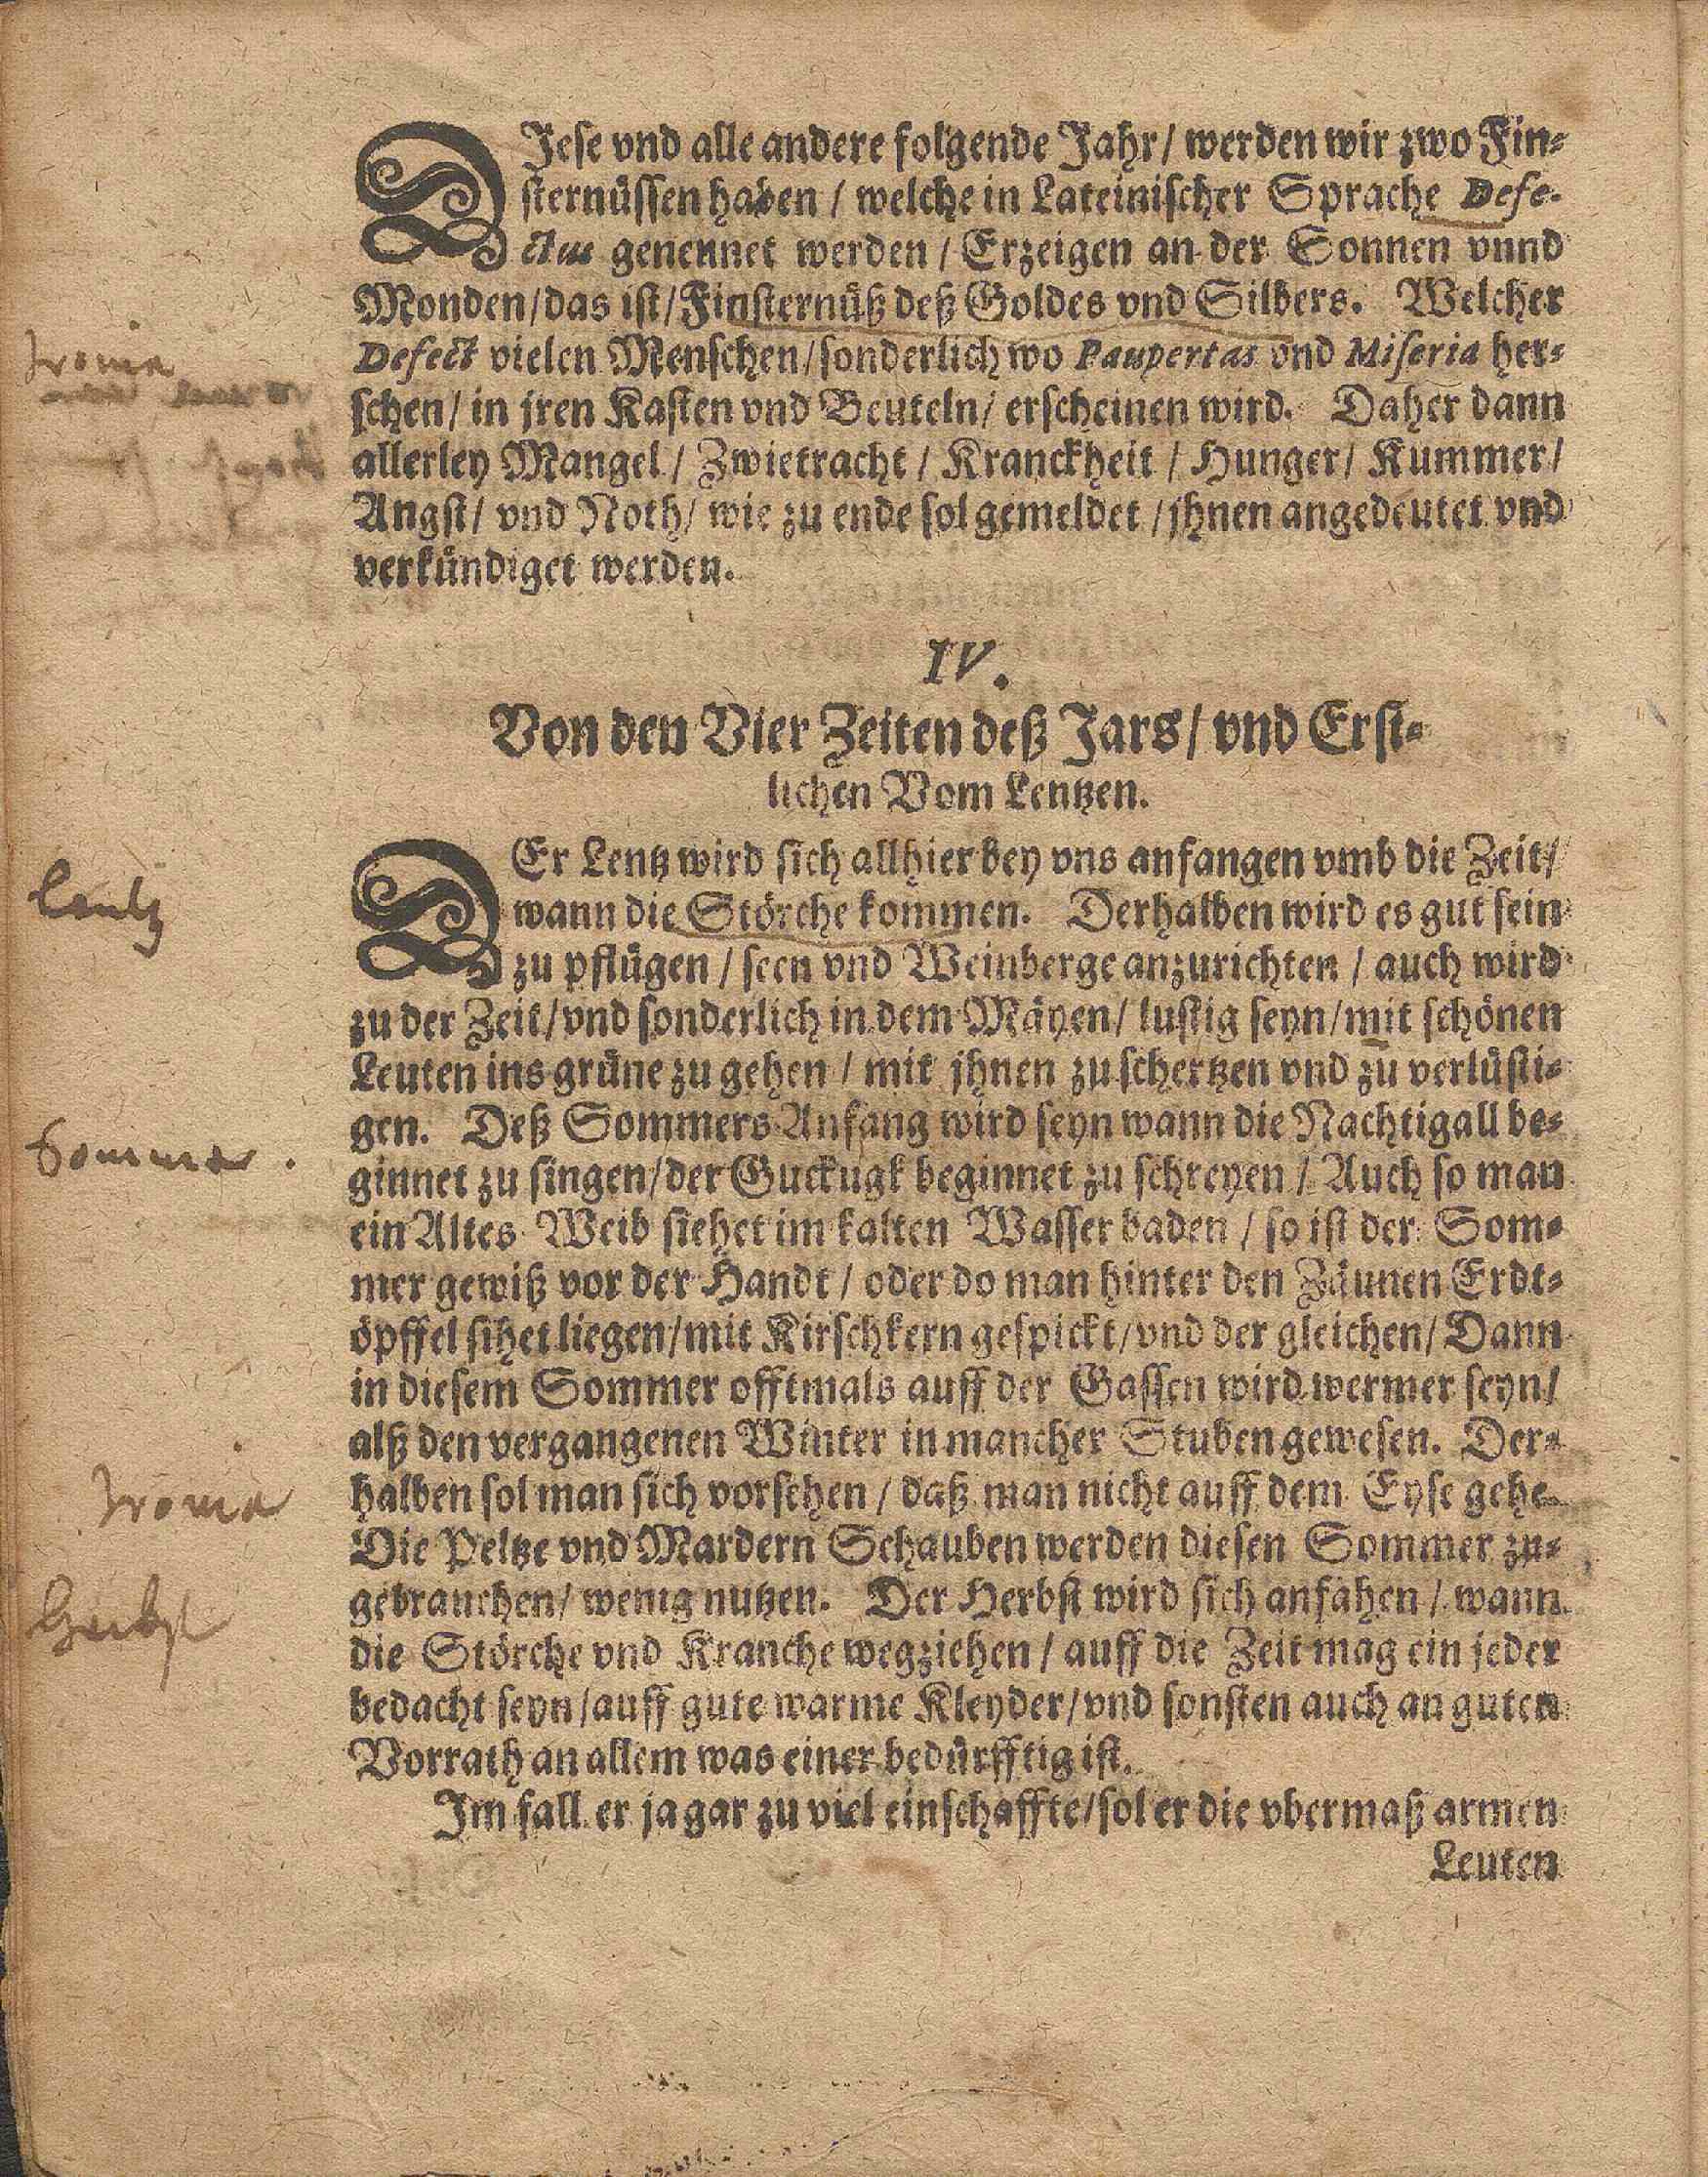 DJese vnd alle andere folgende Jahr / werden wir zwo Fin⸗
sternüssen haben / welche in Lateinischer Sprache Defe-
ctus genennet werden / Erzeigen an der Sonnen vnnd
Monden / das ist / Finsternüß deß Goldes vnd Silbers. Welcher
Defect vielen Menschen / sonderlich wo Paupertas vnd Miseria her⸗
schen / in jren Kasten vnd Beuteln / erscheinen wird. Daher dann
allerley Mangel / Zwietracht / Kranckheit / Hunger / Kummer /
Angst / vnd Noth / wie zu ende sol gemeldet / jhnen angedeutet vnd
verkündiget werden.
Ironia
IV.
Von den Vier Zeiten deß Jars / vnd Erst⸗
lichen Vom Lentzen.
DEr Lentz wird sich allhier bey vns anfangen vmb die Zeit /
wann die Störche kommen. Derhalben wird es gut sein
zu pflügen / seen vnd Weinberge anzurichten / auch wird
zu der Zeit / vnd sonderlich in dem Mäyen / lustig seyn / mit schönen
Leuten ins grüne zu gehen / mit jhnen zu schertzen vnd zu verlüsti⸗
gen. Deß Sommers Anfang wird seyn wann die Nachtigall be⸗
ginnet zu singen / der Guckugk beginnet zu schreyen / Auch so man
ein Altes Weib siehet im kalten Wasser baden / so ist der Som⸗
mer gewiß vor der Handt / oder do man hinter den Zäunen Erdt⸗
öpffel sihet liegen / mit Kirschkern gespickt / vnd der gleichen / Dann
in diesem Sommer offtmals auff der Gassen wird wermer seyn /
alß den vergangenen Winter in mancher Stuben gewesen. Der⸗
halben sol man sich vorsehen / daß man nicht auff dem Eyse gehe.
Die Peltze vnd Mardern Schauben werden diesen Sommer zu⸗
gebrauchen / wenig nutzen. Der Herbst wird sich anfahen / wann
die Störche vnd Kranche wegziehen / auff die Zeit mag ein jeder
bedacht seyn / auff gute warme Kleyder / vnd sonsten auch an guten
Vorrath an allem was einer bedürfftig ist.
Im fall er ja gar zu viel einschaffte / sol er die vbermaß armen
Leuten
Lentz
Sommer.
Ironia
Herbst